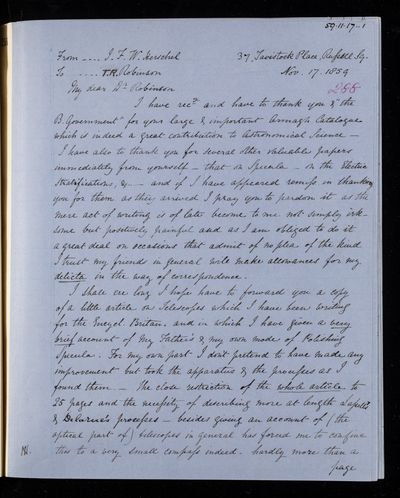 59·11·17·-1
From ---- J. F. W. Herschel 37, Tavistock Place, Russell Sq.
To ---- T.R. Robinson Nov. 17. 1859
My dear Dr. Robinson 266
I have recd. and have to thank you & the
B. Government for your large & important Armagh Catalogue
which is indeed a great contribution to Astronomical Science —
I have also to thank you for several other valuable papers
immediately from yourself — that on Specula — on the Electric
Stratifications, &c — and if I have appeared remiss in thanking
you for them as they arrived I pray you to pardon it as the
mere act of writing is of late become to me not simply irk-
some but positively painful and as I am obliged to do it
a great deal on occasions that admit of no plea of the kind
I trust my friends in general will make allowances for my
delicta in the way of correspondence.
I shall ere long I hope have to forward you a copy
of a little article on Telescopes which I have been writing
for the Encycl. Britan. and in which I have given a very
brief account of My Father's & my own mode of Polishing
Specula. For my own part I don't pretend to have made any
improvement but took the apparatus & the processes as I
found them — The close restriction of the whole article to
35 pages and the necessity of describing more at length Lassell's
& Delarue's processes — besides giving an account of (the
optical part of) telescopes in general has forced me to confine
this to a very small compass indeed. hardly more than a
page